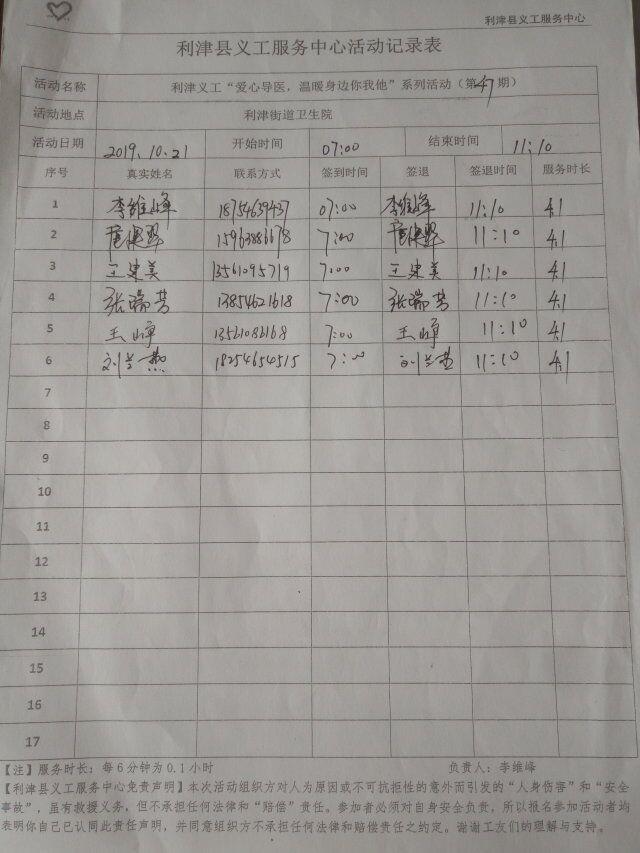 利津县义工服务中心
利津县义工服务中心活动记录表
活动名称 利津义工“爱心导医，温暖身边你我他”系列活动（第47期）
活动地点 利津街道卫生院
活动日期 2019.10.21 开始时间 07:00 结束时间 11:10
序号 真实姓名 联系方式 签到时间 签退 签退时间 服务时长
1 李维峰 18754639437 07:00 李维峰 11:10 4.1
2 15963886678 7:00 11:10 4.1
3 王建美 13561095719 7:00 王建美 11:10 4.1
4 张瑞芳 13854621618 7:00 张瑞芳 11:10 4.1
5 王峰 13561086168 7:00 王峰 11:10 4.1
6 刘兰燕 18254654515 7:00 刘兰燕 11:10 4.1
7
8
9
10
11
12
13
14
15
16
17
【注】服务时长：每6分钟为0.1小时 负责人：李维峰
【利津县义工服务中心免责声明】本次活动组织方对人为原因或不可抗拒性的意外而引发的“人身伤害”和“安全
事故”，虽有救援义务，但不承担任何法律和“赔偿”责任。参加者必须对自身安全负责，所以报名参加活动者均
表明你自己已认同此责任声明，并同意组织方不承担任何法律和赔偿责任之约定。谢谢工友们的理解与支持。